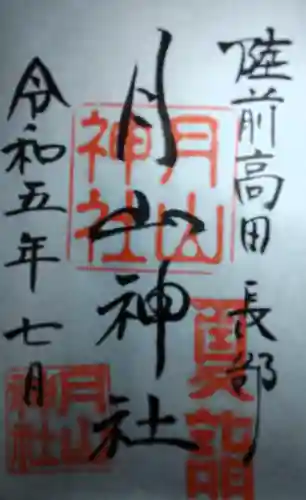 陸前高田 長部
月山神社
令和五年 七月
月山
神社
奥龍
月山
神社